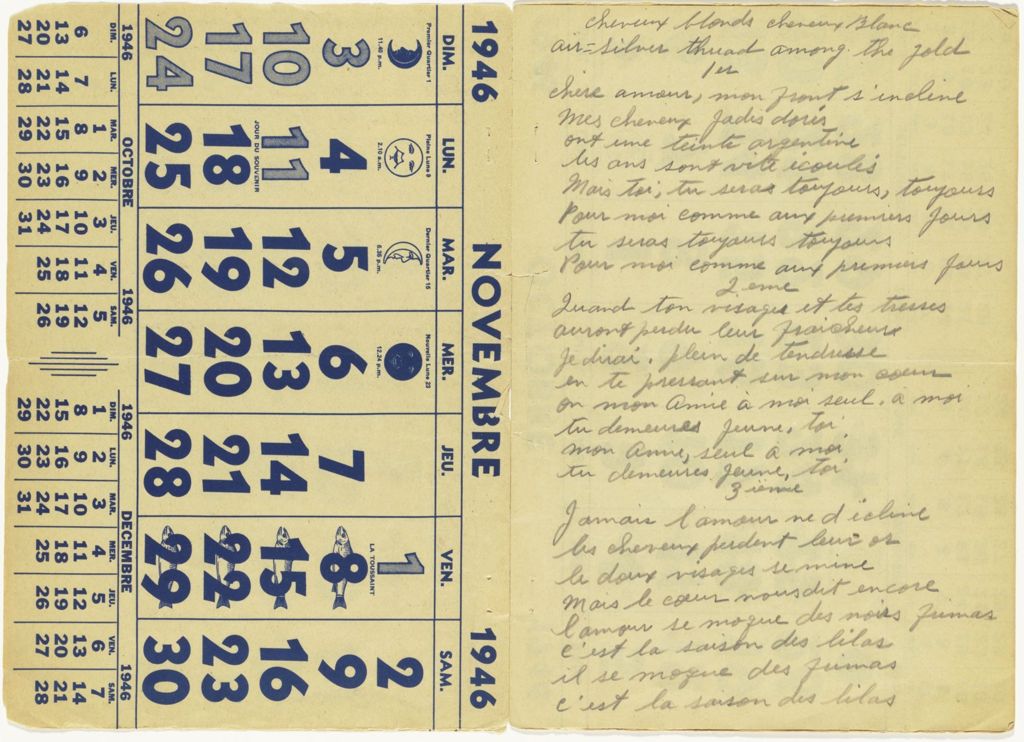 1946 NOVEMBRE 1946
DIM. LUN. MAR. MER. JEU. VEN. SAM.
Premier Quartier 1 Pleine Lune 9 Dernier Quartier 16 Nouvelle Lune 23 1 2
11.40 p.m. 2.10 a.m. 12.24 p.m. LA TOUSSAINT
3 4 5 6 7 8 9
10 11 12 13 14 15 16
JOUR DU SOUVENIR
17 18 19 20 21 22 23
24 25 26 27 28 29 30
1946 OCTOBRE 1946
DIM. LUN. MAR. MER. JEU. VEN. SAM.
1 2 3 4 5
6 7 8 9 10 11 12
13 14 15 16 17 18 19
20 21 22 23 24 25 26
27 28 29 30 31
1946 DECEMBRE 1946
DIM. LUN. MAR. MER. JEU. VEN. SAM.
1 2 3 4 5 6 7
8 9 10 11 12 13 14
15 16 17 18 19 20 21
22 23 24 25 26 27 28
29 30 31
Cheveux blonds cheveux Blanc
air=Silver thread among the gold
1er
Chère amour, mon front s'incline
Mes cheveux jadis dorés
ont une teinte argentine
les ans sont vite écoulés
Mais toi, tu seras toujours, toujours
Pour moi comme aux premiers jours
tu seras toujours toujours
Pour moi comme aux premiers jours
2 eme
Quand ton visage et tes tresses
auront perdu leur fraicheur
Je dirai. plein de tendresse
en te pressant sur mon coeur
on mon Amie à moi seul. a moi
tu demeures jeune, toi
mon Amie, seul à moi,
tu demeures jeune, toi
3 ième
Jamais l'amour ne décline
les cheveux perdent leur or
le doux visages se mine
Mais le cœur nous dit encore
l'amour se moque des noirs frimas
c'est la saison des lilas
il se moque des frimas
c'est la saison des lilas